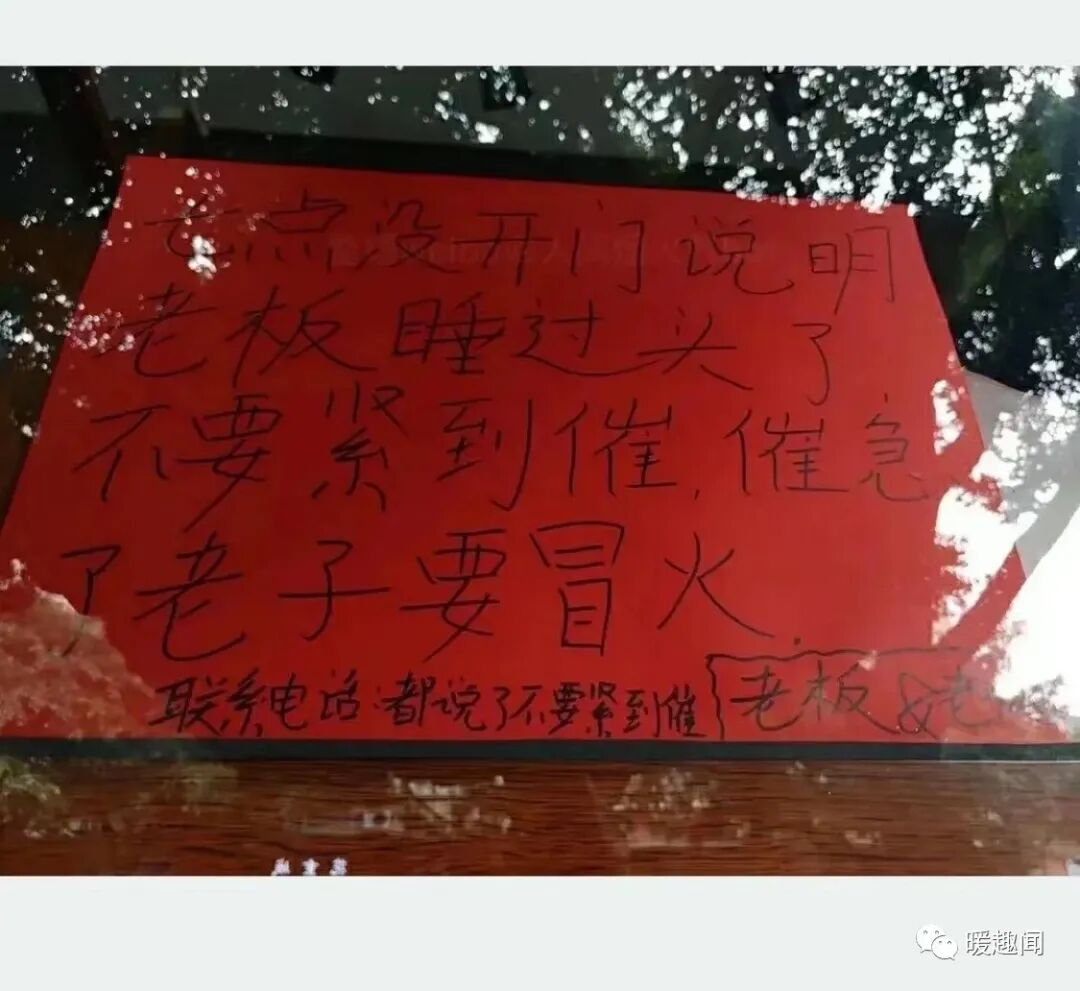 七点没开门说明
老板睡过头了
不要紧到催,催急
了老子要冒火.
联系电话:都说了不要紧到催
老板
暖趣闻